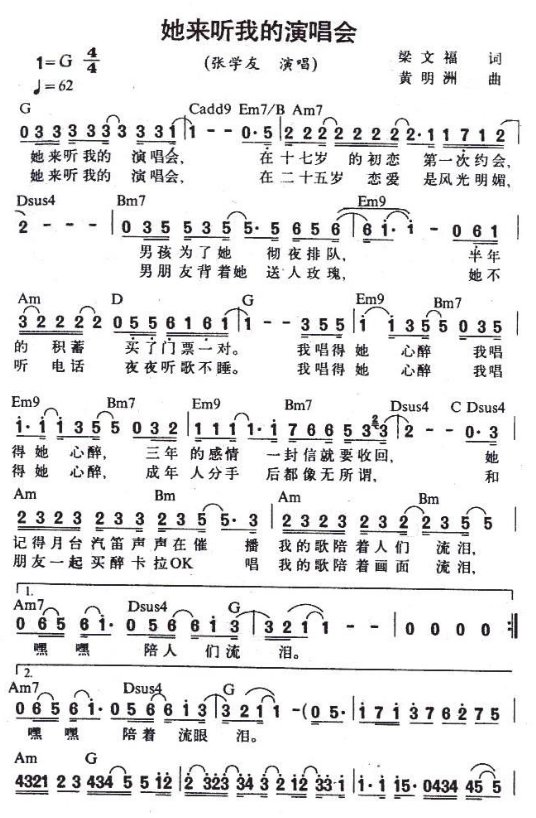 她来听我的演唱会
1=G 4/4
(张学友 演唱)
梁文福 词
♩=62
黄明洲 曲
G Cadd9 Em7/B Am7
0 3 3 3 3 3 3 3 3 3 1 1 - - 0·5 2 2 2 2 2 2 2 2·1 1 7 1 2
她来听我的 演唱会, 在十七岁 的初恋 第一次约会,
她来听我的 演唱会, 在二十五岁 恋爱 是风光明媚,
Dsus4 Bm7 Em9
2 - - 0 3 5 5 3 5 5· 5 6 5 6 6 1· 1 - 0 6 1
男孩为了她 彻夜排队, 半年
男朋友背着她 送人玫瑰, 她不
Am D G Em9 Bm7
3 2 2 2 2 0 5 5 6 1 6 1 1 - - 3 5 5 1 1 3 5 5 0 3 5
的 积蓄 买了门票一对。 我唱得她 心醉 我唱
听 电话 夜夜听歌不睡。 我唱得她 心醉 我唱
Em9 Bm7 Em9 Bm7 Dsus4 C Dsus4
1· 1 1 3 5 5 0 3 2 1· 1 0 1 1 7 6 6 5 3 3 2 - - 0·3
得她 心醉, 三年 的感情 一封信就要收回, 她
得她 心醉, 成年 人分手 后都像无所谓, 和
Am Bm Am Bm
2 3 2 3 2 3 2 3 2 3 5 5·3 2 3 2 3 2 3 2 2 3 5 5
记得月台 汽笛声声在催 播 我的歌陪着人们 流泪,
朋友一起 买醉卡拉OK 唱 我的歌陪着画面 流泪,
1.
Am7 Dsus4 G
0 6 5 6 1· 0 5 6 6 1 3 3 2 1 1 - - 0 0 0 0
嘿 嘿 陪人 们流 泪。
2.
Am7 Dsus4 G
0 6 5 6 1· 0 5 6 6 1 3 3 2 1 1 -(0 5· 1 7 1 3 7 6 2 7 5
嘿 嘿 陪着 流眼 泪。
Am G
4321 2 3 434 5 5 12 2· 323 34 3 2 12 33·1 1· 1 15· 0434 45 5